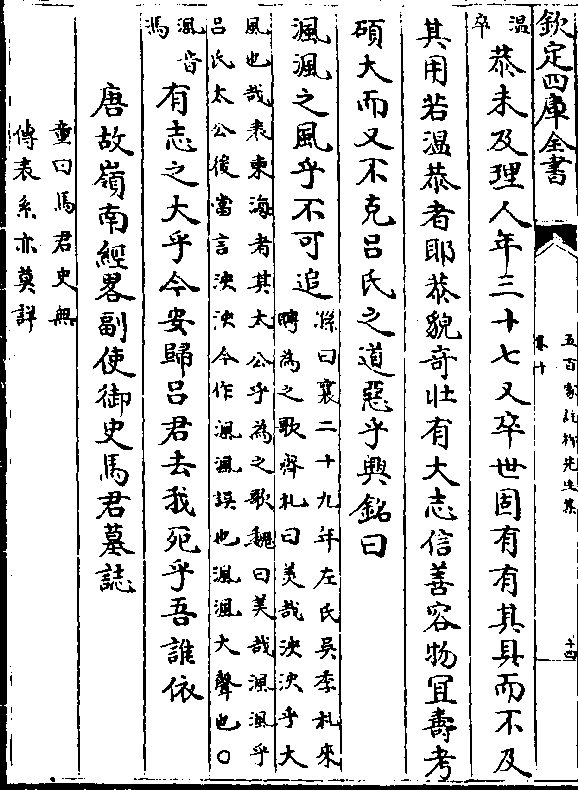 欽定四庫全書
五百家註柳先生集
卷十
十四
温
卒
恭未及理人年三十七又卒世固有有其具而不及
其用若温恭者耶恭貌奇壯有大志信善容物冝壽考
碩大而又不克吕氏之道惡乎興銘曰
渢渢之風乎不可追
孫曰襄二十九年左氏吳季札來
聘為之歌齊札曰美哉泱泱乎大
風也哉表東海者其太公乎為之歌魏曰美哉渢渢乎
吕氏太公後當言泱泱今作渢渢誤也渢渢大聲也〇
渢音
馮
有志之大乎今安歸吕君去我死乎吾誰依
唐故嶺南經畧副使御史馬君墓誌
童曰馬君史無
傳表系亦莫詳